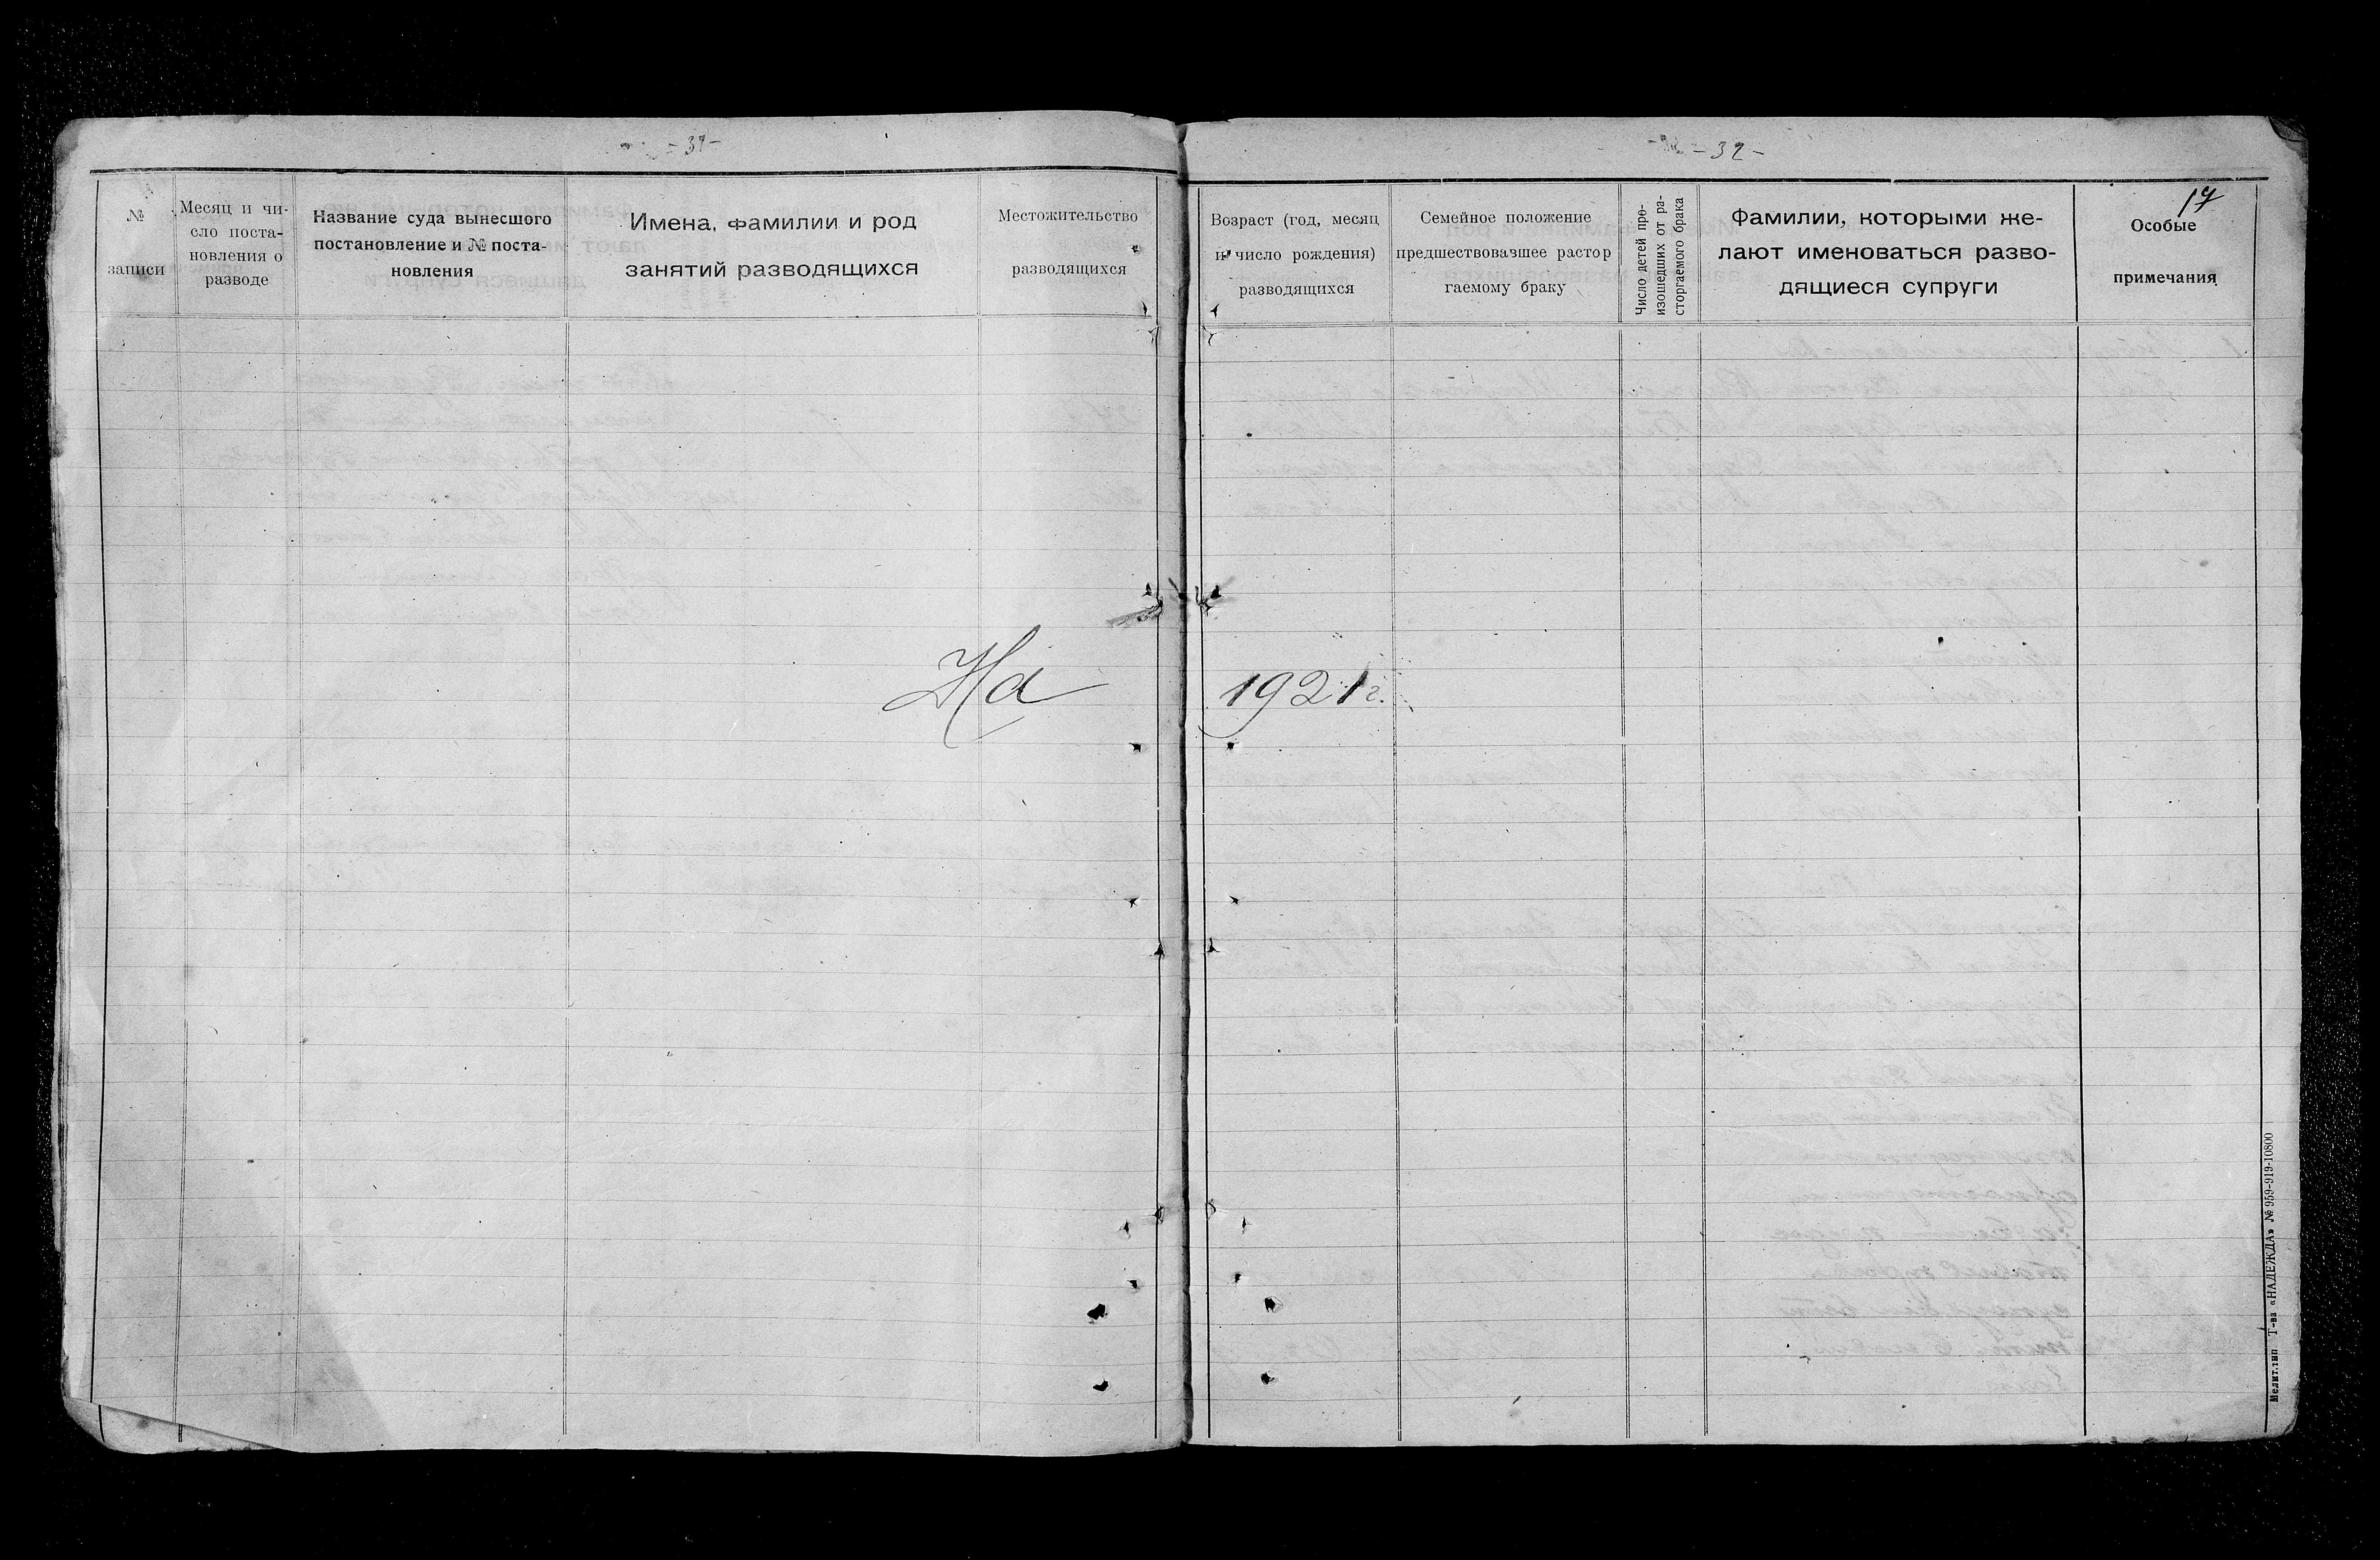 - 31 -
№
записи
Месяц и чи-
сло поста-
новления о
разводе
Название суда вынесшого
постановление и № поста-
новления
Имена, фамилии и род
занятий разводящихся
Местожительство
разводящихся
На
- 32 -
17
Возраст (год, месяц
и число рождения)
разводящихся
Семейное положение
предшествовавшее растор
гаемому браку
Число детей про-
изошедших от ра-
сторгаемого брака
Фамилии, которыми же-
лают именоваться разво-
дящиеся супруги
Особые
примечания
1921 г.
Мелит. тип Т-ва «НАДЕЖДА» № 959-919-10800